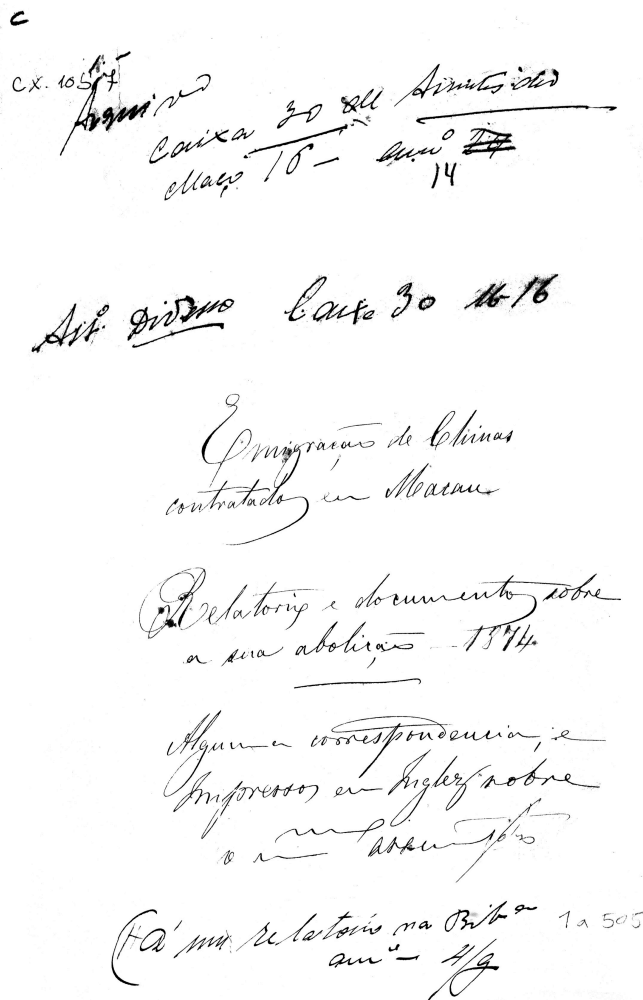 C
CX. 1057
Arquivo
Caixa 30 de Assuntos div
Maço 16 – arm.º
14
Ass.º Diverso Caixa 30 M 16
Emigração de Chinas
contratados em Macau
Relatorio e documentos sobre
a sua abolição – 1874
Alguma correspondencia, e
Impressos em Inglez sobre
o m assumpto
(Há um relatorio na Bib.ca 1 a 505
arm.º – 4/g